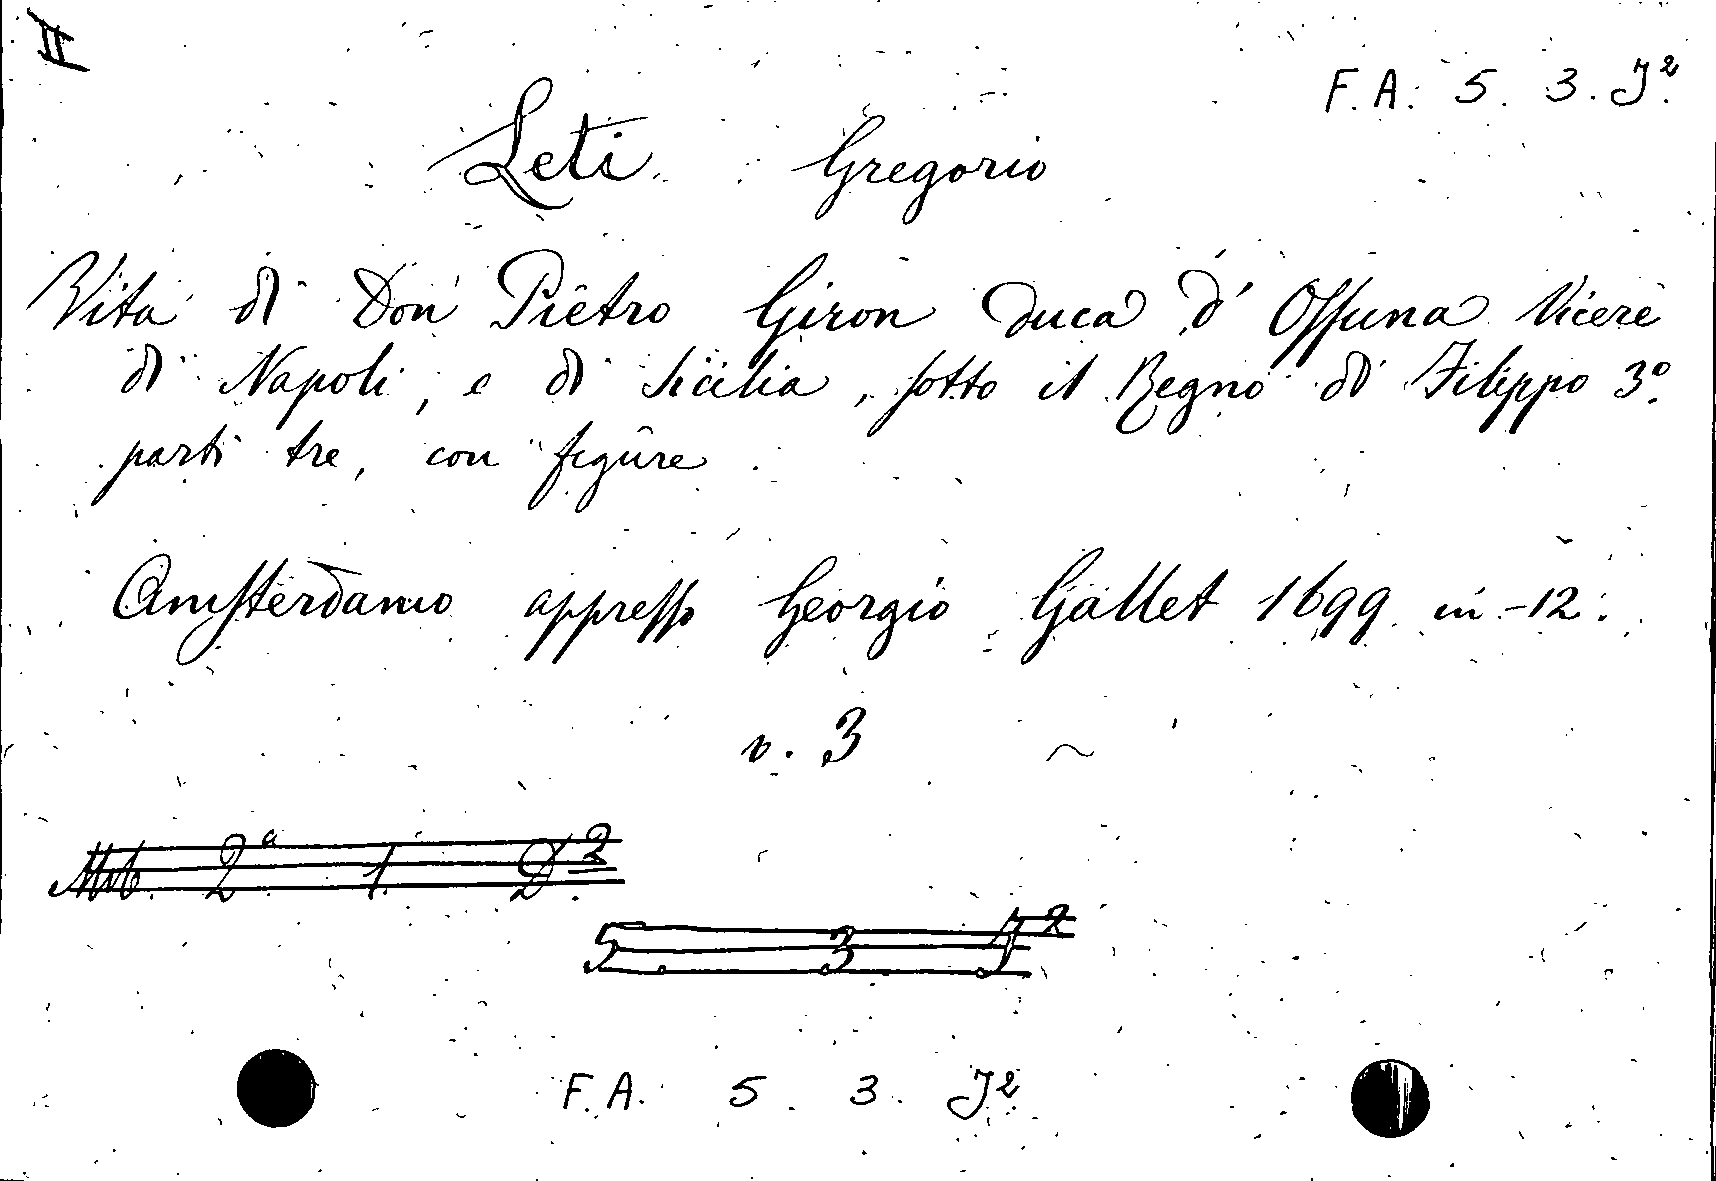 II
F. A. 5. 3. J².
Leti Gregorio
Vita di Don Pietro Giron Duca d' Ossuna Vicerè
di Napoli, e di Sicilia, sotto il Regno di Filippo 3º.
parti tre, con figure
Amsterdamo appresso Georgio Gallet 1699 in-12.
v. 3
2ª 1. D².
5. 3. J²
F. A. 5. 3. J²